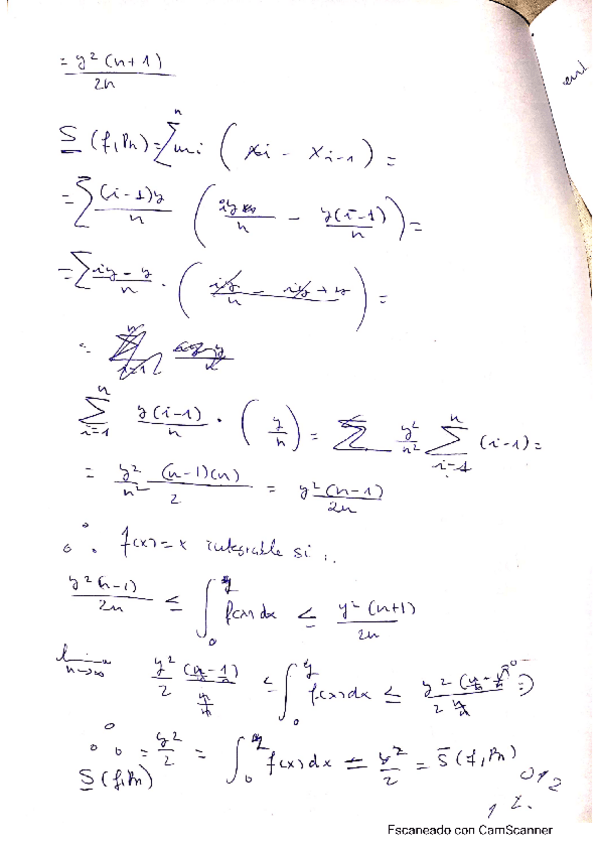 = y² (n+1) / 2n
S̲ (f,Pn) = Σⁿ mi (xi - xi-1) =
= Σ (i-1)y / n ( iy / n - y(i-1) / n ) =
= Σ iy - y / n · ( iy / n - iy + y ) =
n Σ i=1 y(i-1) / n · ( y / n ) = y² / n² n Σ i=1 (i-1) =
= y² / n² (n-1)(n) / 2 = y² (n-1) / 2n
∴ f(x) = x integrable si
y² (n-1) / 2n ≤ ∫₀ʸ f(x) dx ≤ y² (n+1) / 2n
lim n→∞ y² / 2 ≤ ∫₀ʸ f(x) dx ≤ y² / 2
∴ S̲ (f,Pn) = y² / 2 = ∫₀ʸ f(x) dx = y² / 2 = S̄ (f,Pn)
Escaneado con CamScanner